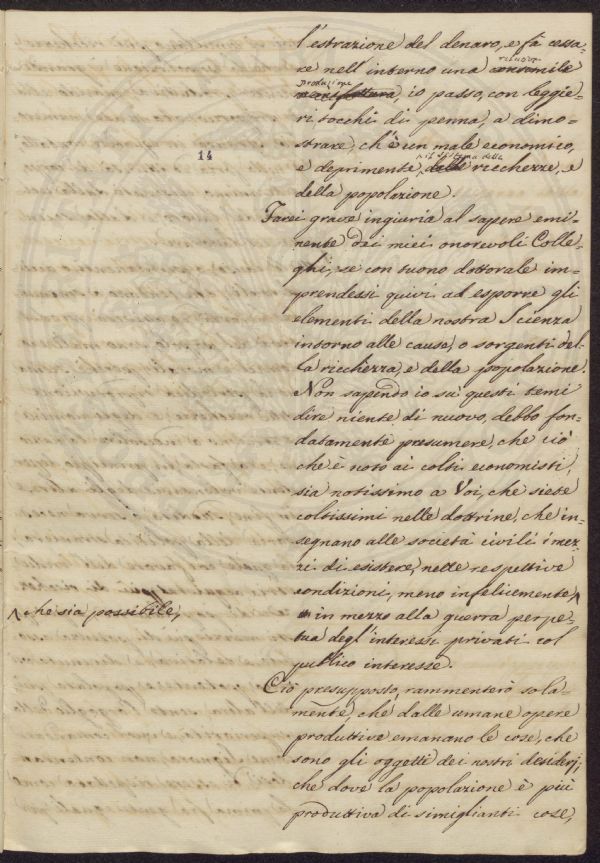 14
l'estrazione del denaro, e fà cessa=
re nell'interno una consimile
produzione
manifattura, io passo, con leggie=
ri tocchi di penna, a dimo=
strare, ch'è un male economico,
e deprimente, delle ricchezze, e
della popolazione.
Farei grave ingiuria al sapere emi=
nente dei miei onorevoli Colle=
ghi, se con tuono dottorale im=
prendessi quivi ad esporre gli
elementi della nostra Scienza
intorno alle cause, o sorgenti del=
la ricchezza, e della popolazione.
Non sapendo io sù questi temi
dire niente di nuovo, debbo fon=
datamente presumere, che ciò
che è noto ai colti economisti,
sia notissimo a Voi, che siete
coltissimi nelle dottrine, che in=
segnano alle società civili i mez=
zi di esistere, nelle respettive
condizioni, meno infelicemente
che sia possibile,
in mezzo alla guerra perpe=
tua degl'interessi privati col
publico interesse.
Ciò presupposto, rammenterò sola=
mente, che dalle umane opere
produttive emanano le cose, che
sono gli oggetti dei nostri desiderj;
che dove la popolazione è più
produttiva di simiglianti cose,